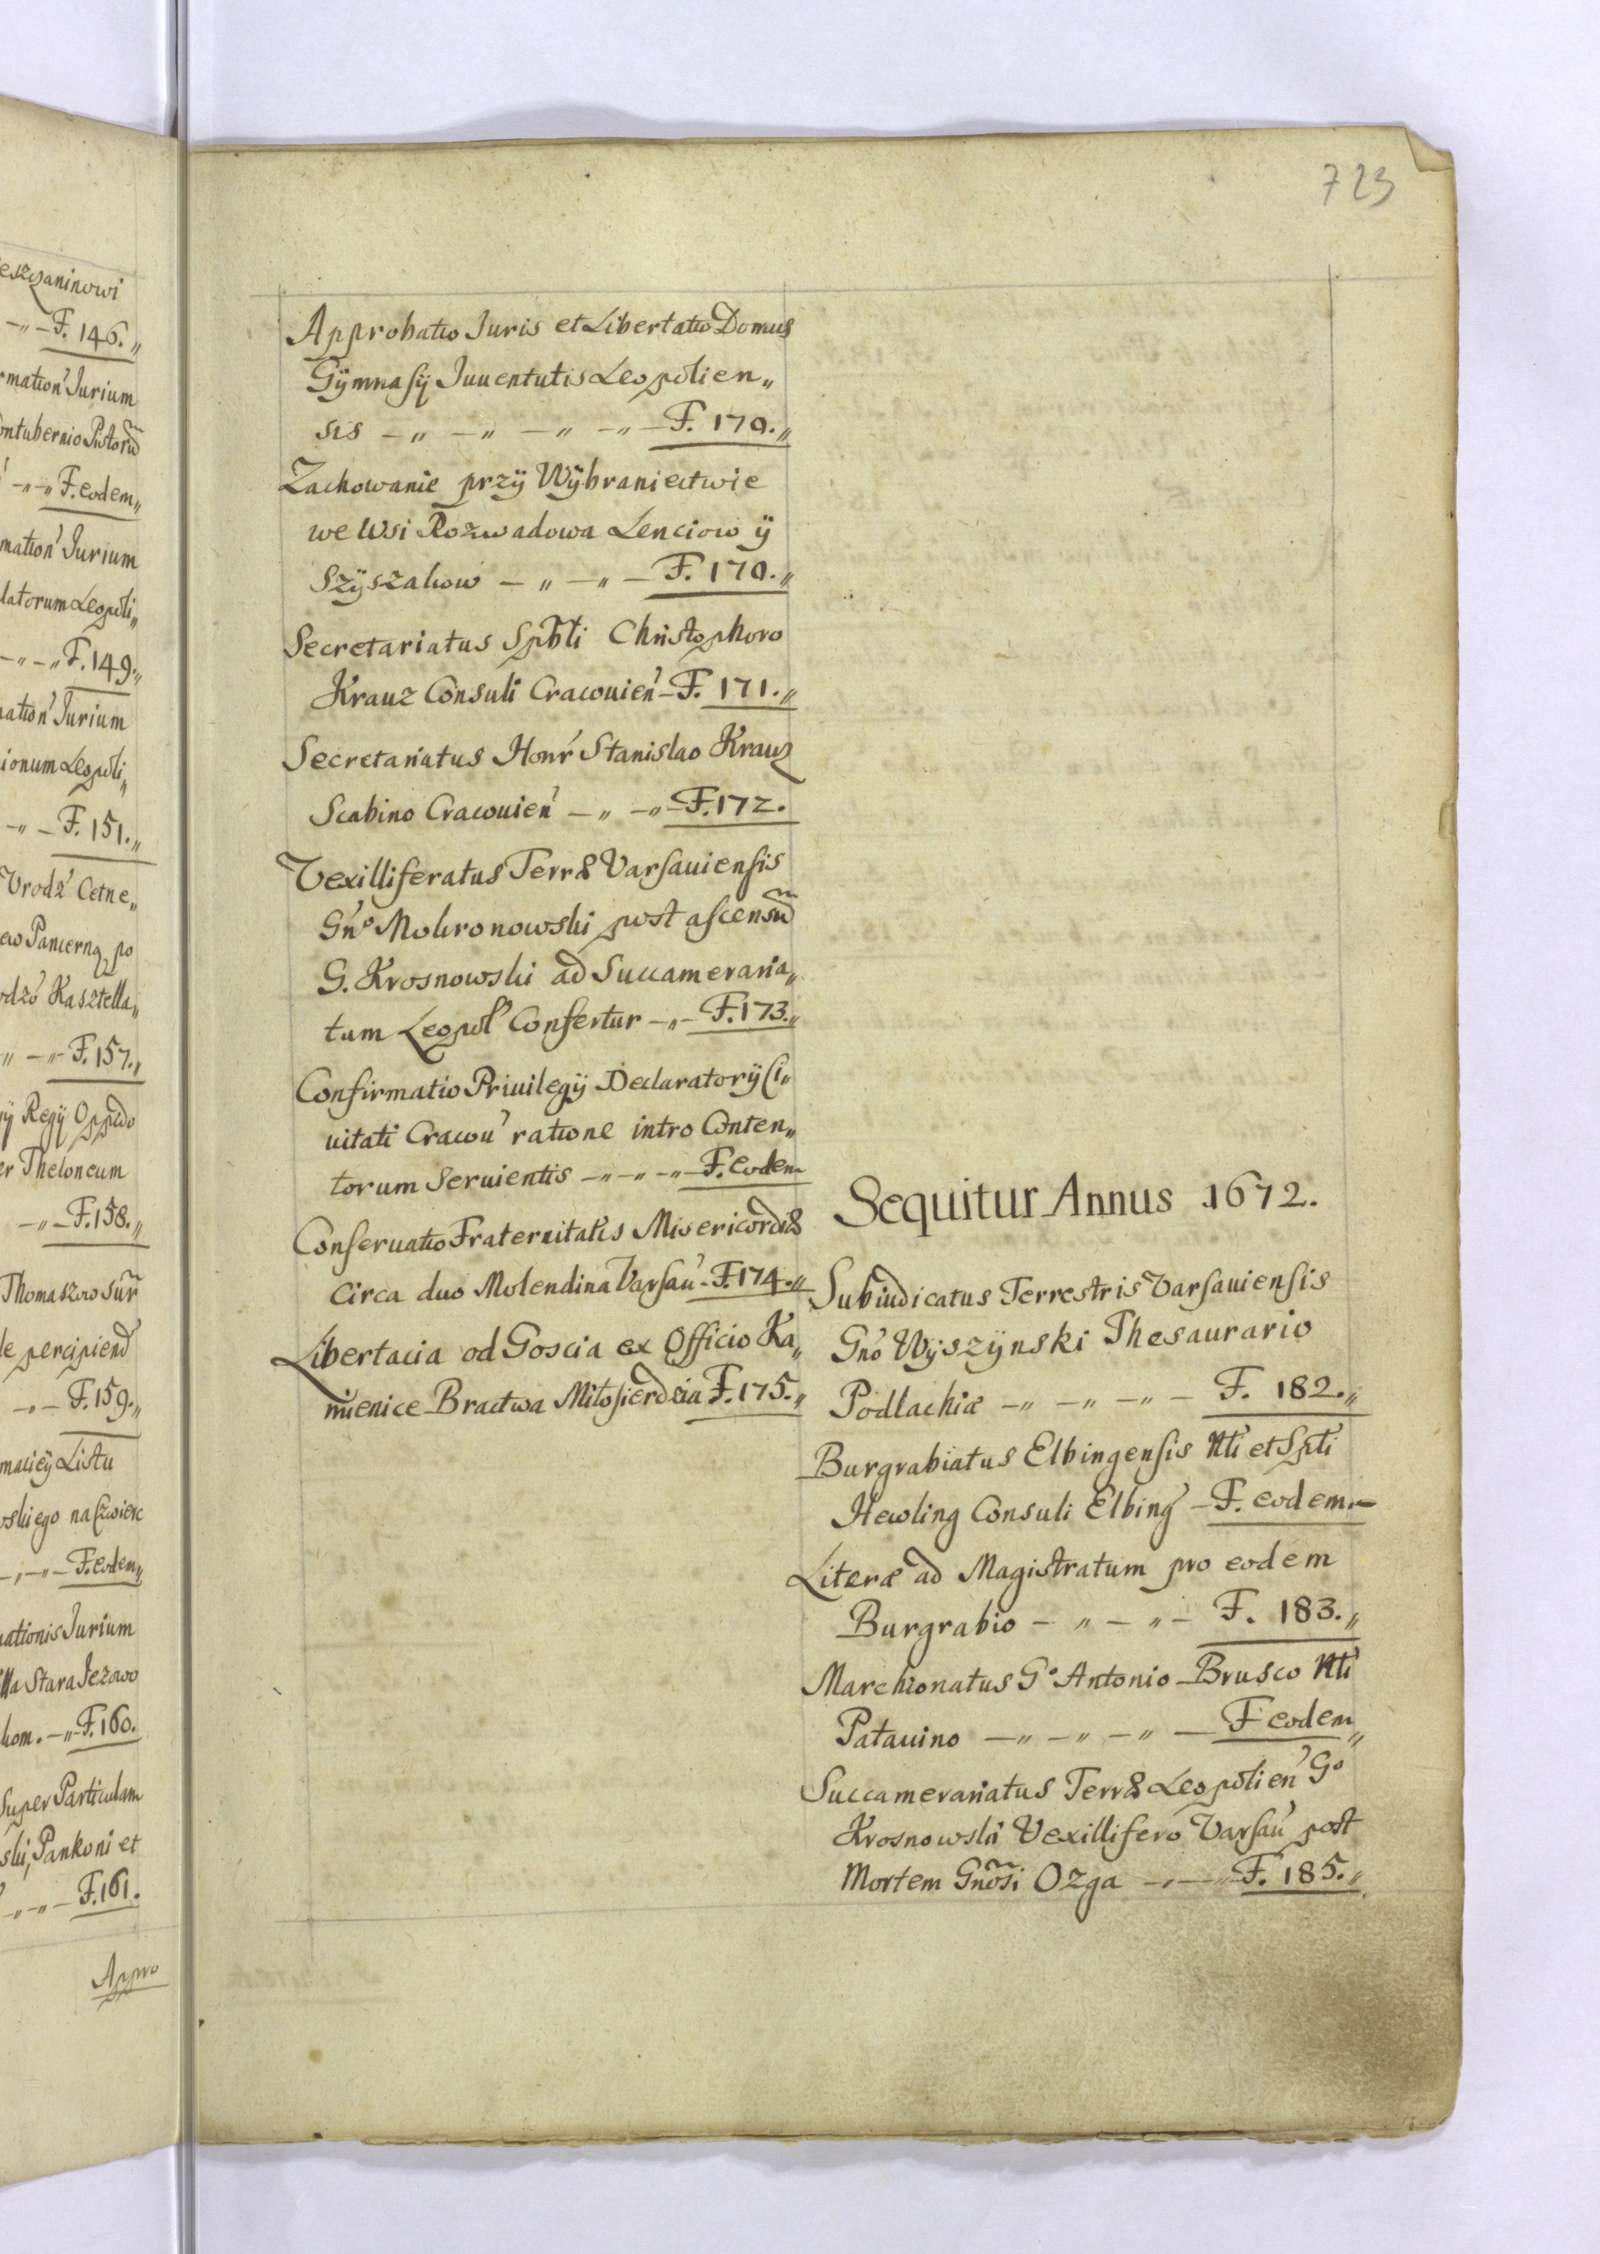 eszczaninowi
-„- F. 146.„
rmation' Jurium
ontubernio Pistorũ
-„-„ F. eodem„
mation' Jurium
latorum Leopoli„
-„-„ F. 149.„
ation' Jurium
ionum Leopoli„
-„- F. 151.„
Vrodz' Cetne„
Pancerną po
odzo' Kasztella„
„-„- F. 157.„
ÿ Regÿ Oppido
er Theloneum
-„- F. 158.„
Thomaszowsur̃
le percipiend
-„- F. 159.„
maciey Listu
skiego na Czwierc
-„-„- F. eodem„
ationis Jurium
lla Stara Jezowo
hom. -„- F. 160.
Super Particulam
ski, Pankoni et
-„-„- F. 161.
Appro
723
Approbatio Juris et Libertatio Domus
Gÿmnasÿ Juuentutis Leopolien„
sis -„ -„ -„ -„- F. 170.„
Zachowanie przÿ Wÿbraniectwie
we Wsi Rozwadowa Lenciow ÿ
Szÿszakow -„ -„- F. 170.„
Secretariatus Spbli Christophoro
Krauz Consuli Cracouien' - F. 171.„
Secretariatus Honr' Stanislao Krauz
Scabino Cracouien' -„ -„- F. 172.
Vexilliferatus Terræ Varsauiensis
Gn'o Mokronowski post ascensũ
G. Krosnowski ad Succameraria„
tum Leopol' Confertur -„- F. 173.„
Confirmatio Priuilegÿ Declaratorÿ Ci„
uitati Cracou' ratione intro Conten„
torum Seruientis -„-„-„- F. eodem
Conseruatio Fraternitatis Misericordiæ
circa duo Molendina Varsau' - F. 174.„
Libertacia od Goscia ex Officio Ka„
mienice Bractwa Miłosierdzia F. 175.„
Sequitur Annus 1672.
Subiudicatus Terrestris Varsauiensis
Gn'o Wÿszÿnski Thesaurario
Podlachiæ -„ -„ -„- F. 182.„
Burgrabiatus Elbingensis Nti' et Spti'
Hewling Consuli Elbing' - F. eodem„
Literæ ad Magistratum pro eodem
Burgrabio -„ -„- F. 183.„
Marchionatus G'o Antonio Brusco Nti'
Patauino -„ -„ -„ - F eodem„
Succamerariatus Terræ Leopolien' G'o
Krosnowski Vexillifero Varsau' post
Mortem Gnõsi Ozga -„-„- F. 185.„